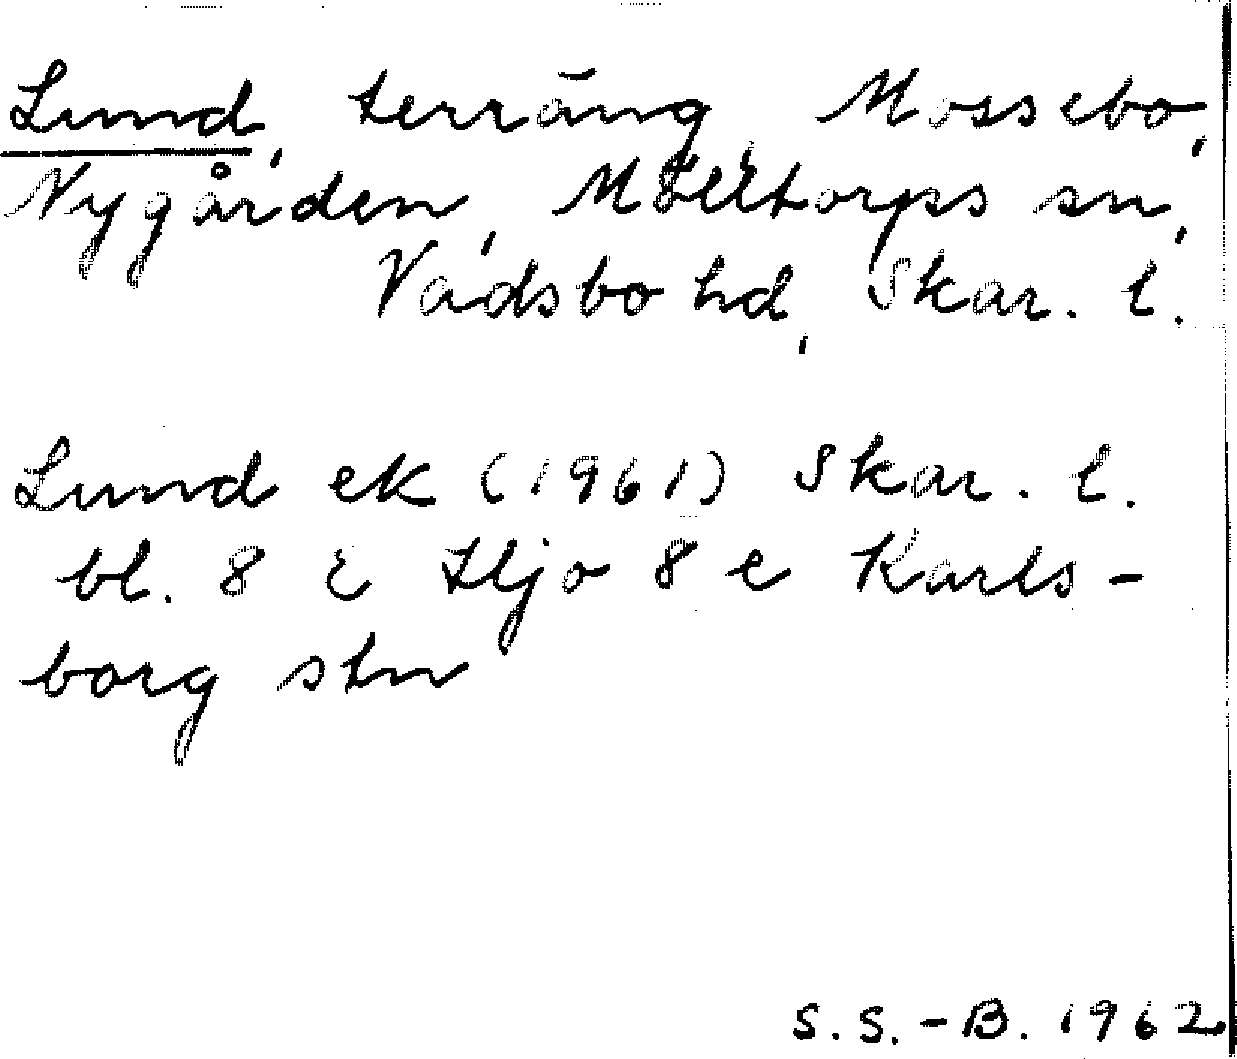 Lund, terräng, Mossebo,
Nygården, Mölltorps sn,
Vadsbo hd, Skar. l.
Lund ek (1961) Skar. l.
bl. 8 E Hjo 8 e Karls-
borg stn
S.S.-B. 1962